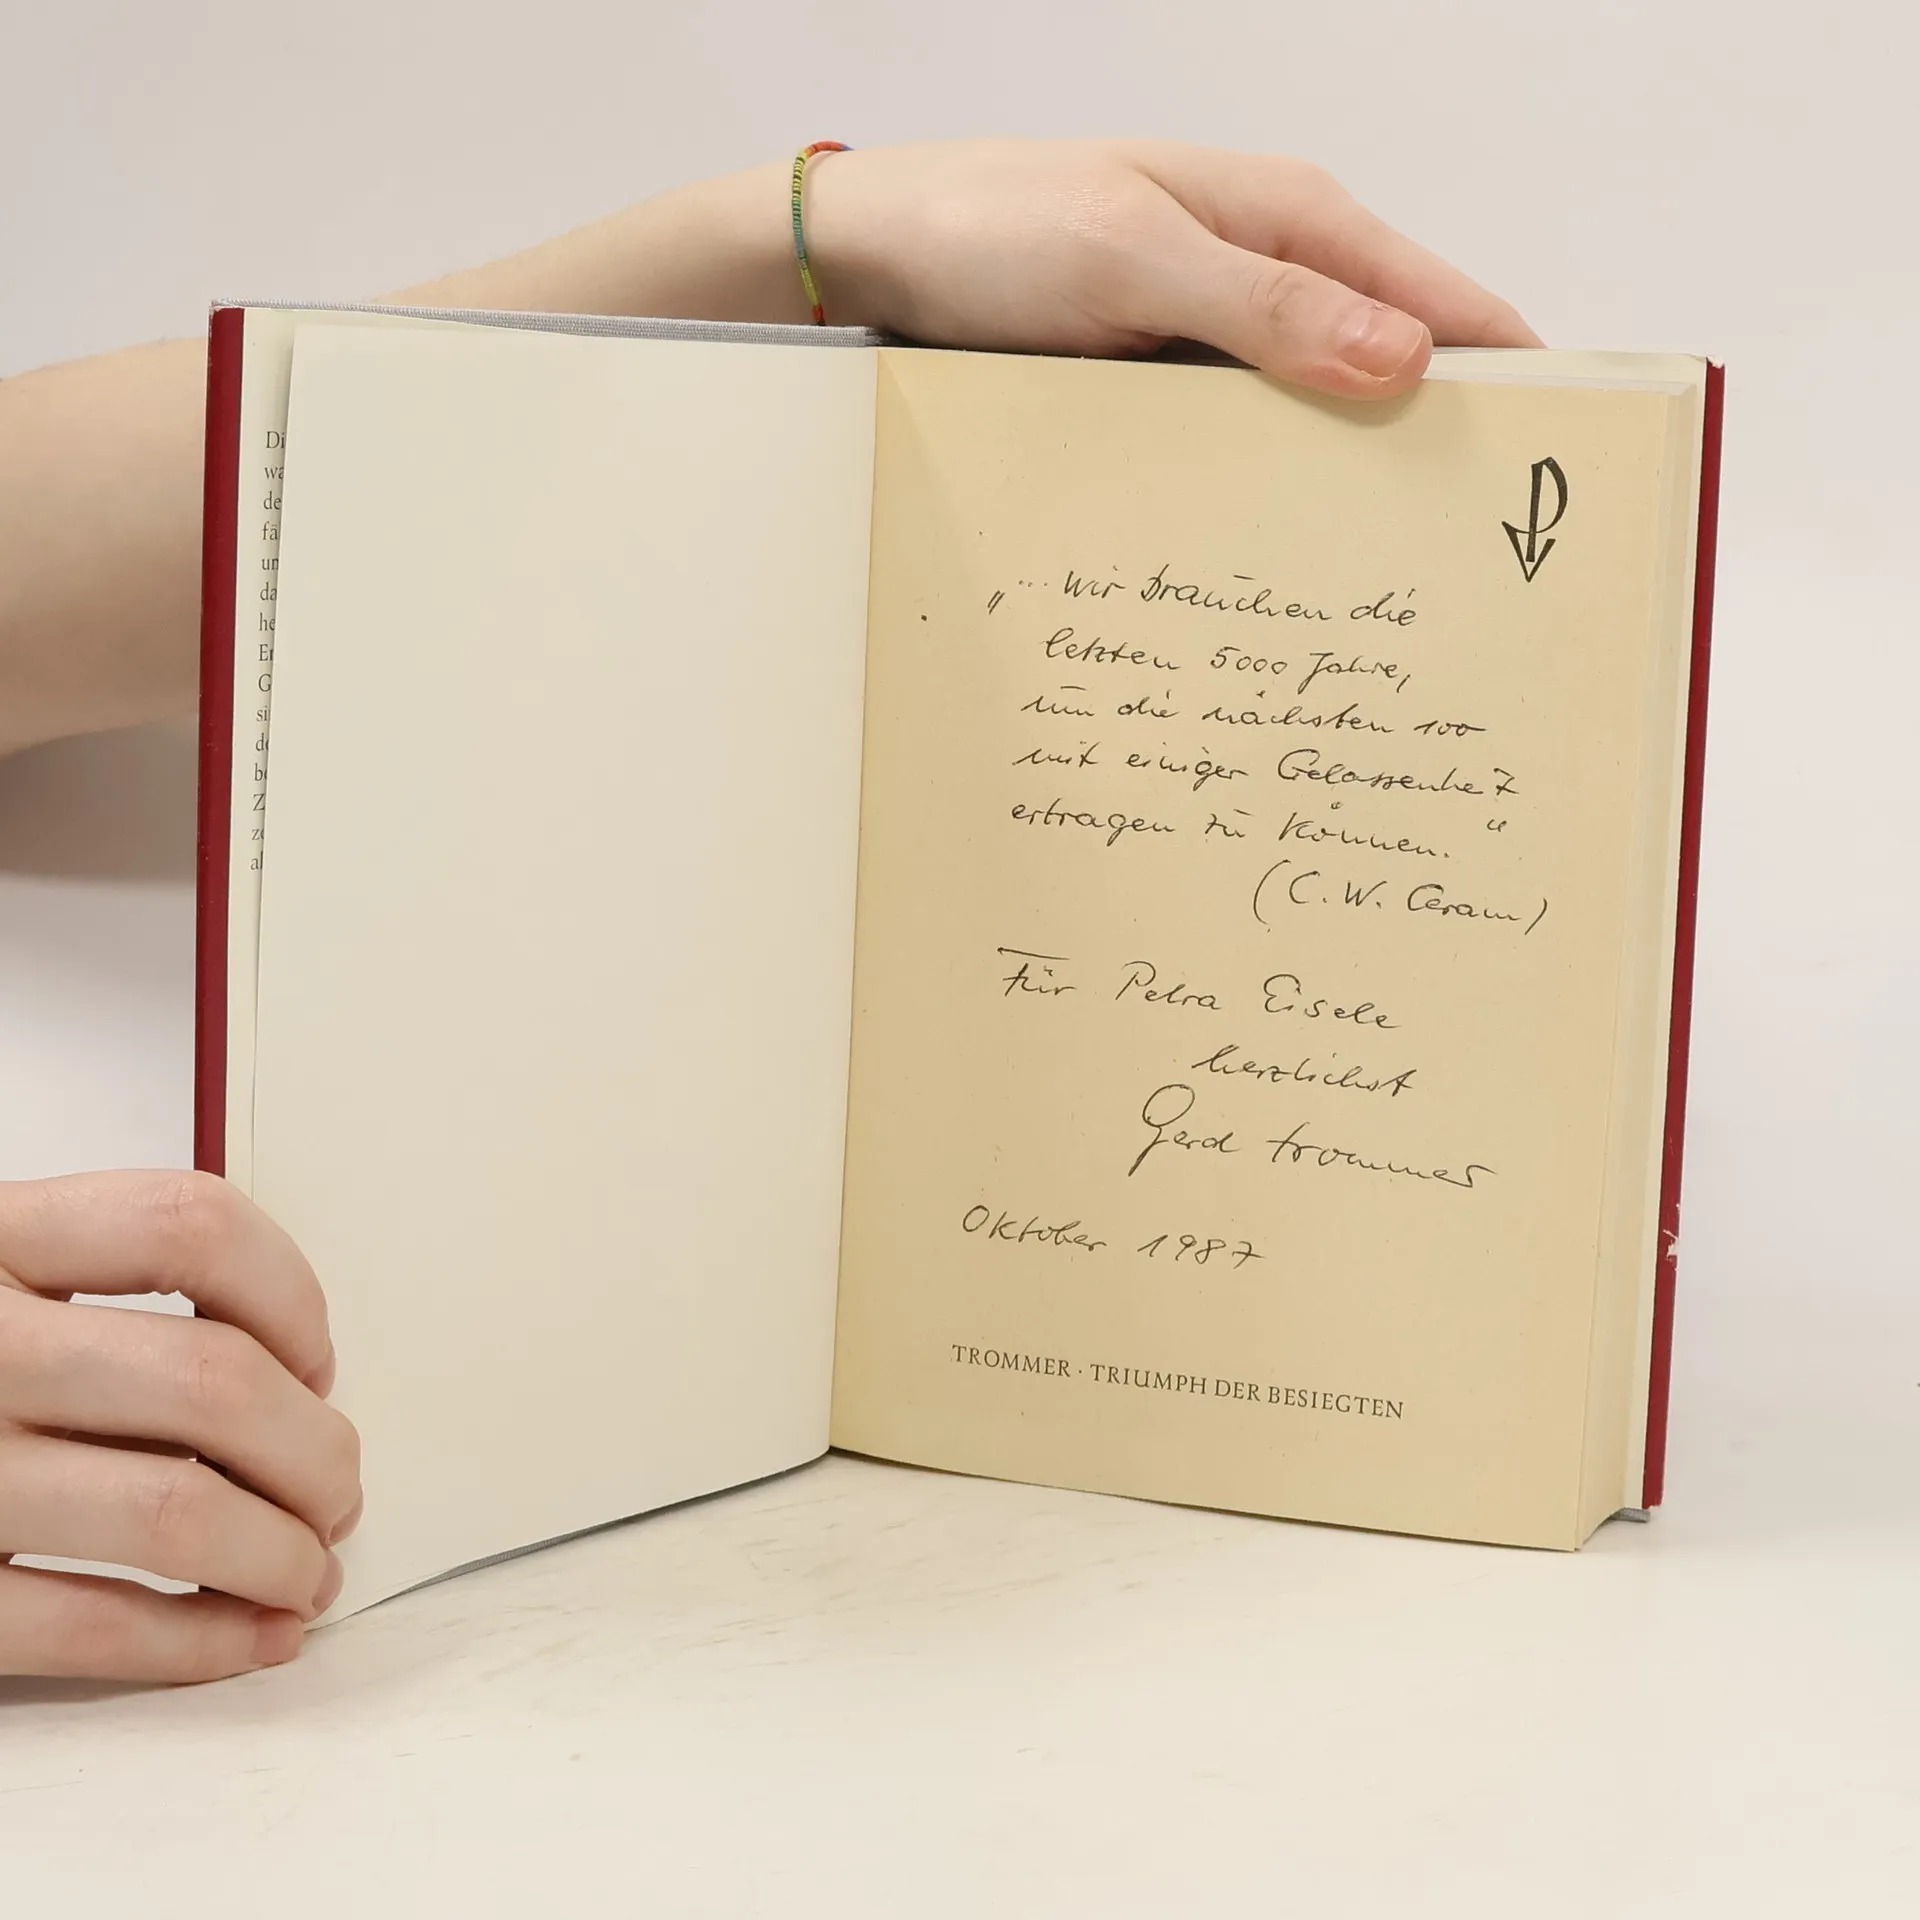 Di
wa
de
fä
un
da
he
En
G
si
de
be
Z
ze
al
„... wir brauchen die
letzten 5000 Jahre,
um die nächsten 100
mit einiger Gelassenheit
ertragen zu können.“
(C. W. Ceram)
Für Petra Eisele
herzlichst
Gerd Trommer
Oktober 1987
TROMMER · TRIUMPH DER BESIEGTEN